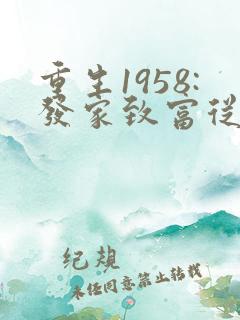 重生1958:
發家致富從
纪規
未任同意禁止转載